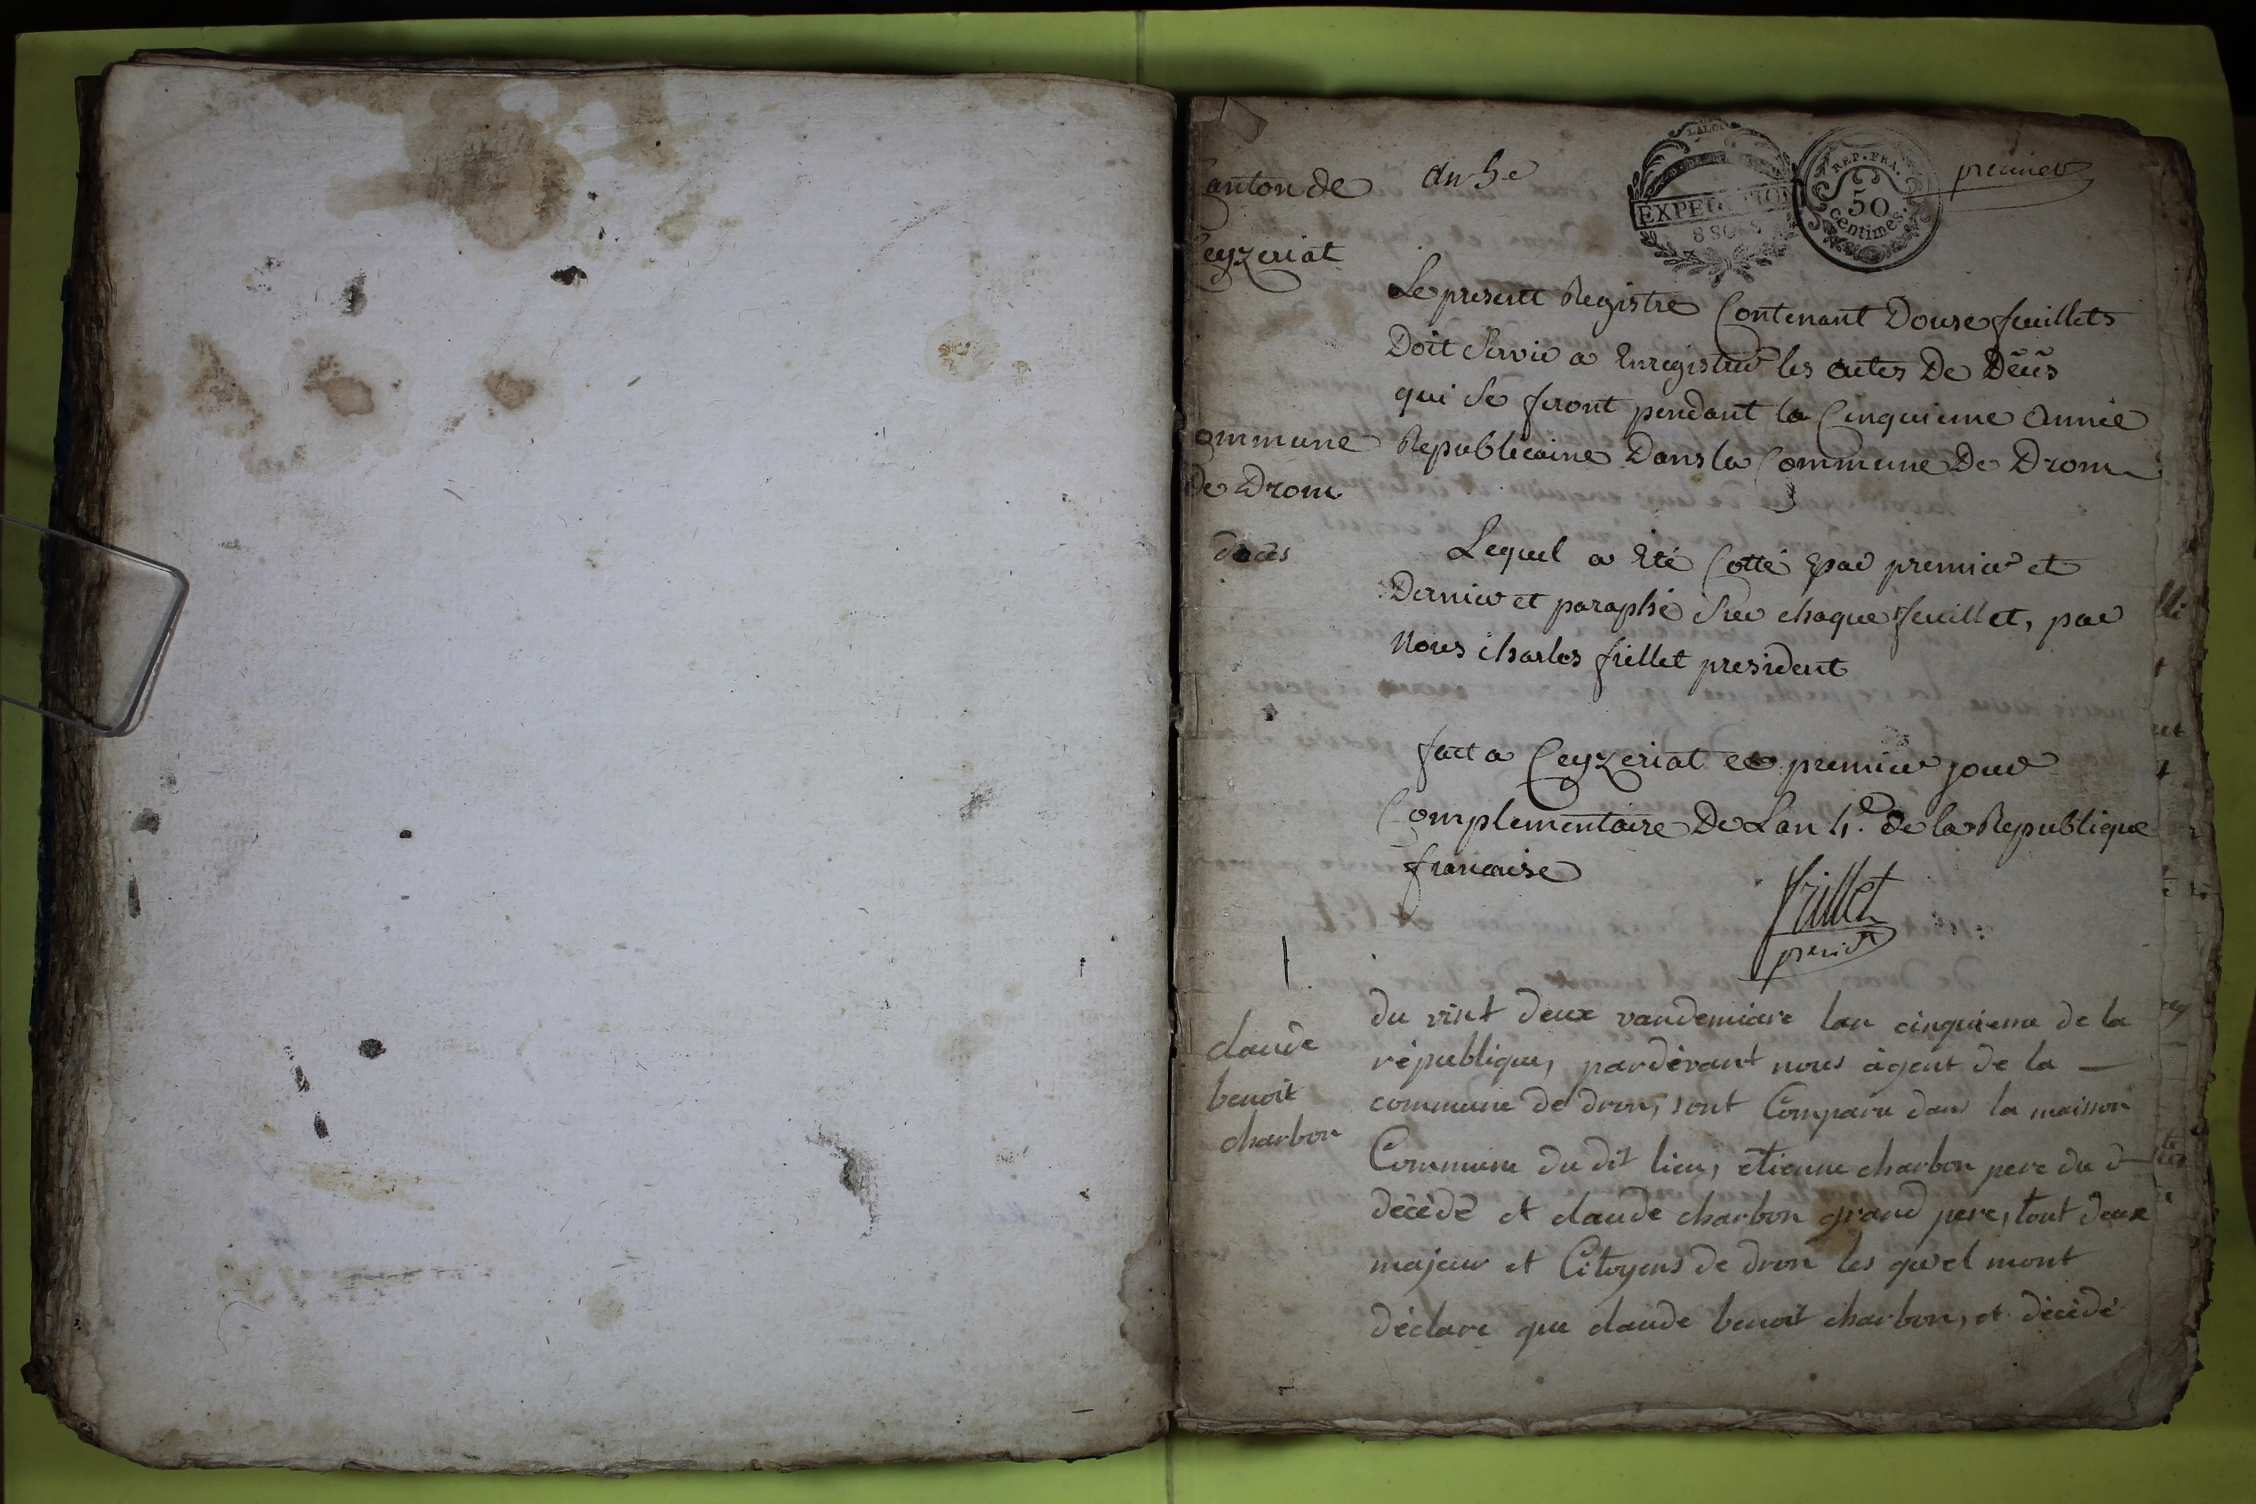 Canton de
Ceyzeriat
an 5e
EXPEDITION
8 SOLS
REP. FRA.
50
centimes.
premier
Le present Registre Contenant Douse feuillets
Doit Servir a Enregistrer les actes De Dẽcẽs
qui Se feront pendant la Cinquieme Année
Republicaine Dans la Commune De Drom
Commune
de Drom
décès
Lequel a Eté Cotté par premier et
Dernier et paraphé Sur chaque feuillet, par
Nous charles frillet president
fait a Ceyzeriat premier jour
Complementaire De Lan 4e de la Republique
francaise
frillet
presidt
1.
claude
benoit
charbon
du vint deux vandemiare lan cinquieme de la
république, pardèvant nous àgent de la —
commune de dron, sont Comparu dans la maison
Commune du dit lieu, étienne charbon pere du d
décédé et claude charbon grand pere, tout deux
majeur et Citoyens de dron les quel mont
déclaré que claude benoit charbon, et décédé